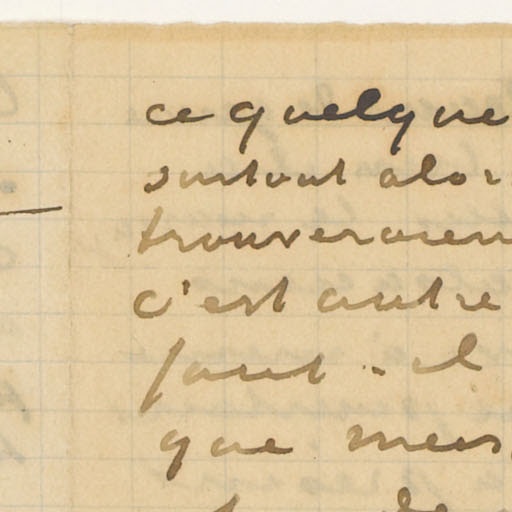 ce quelque
surtout alor
trouveraien
c'est autre
faut-il
que mes